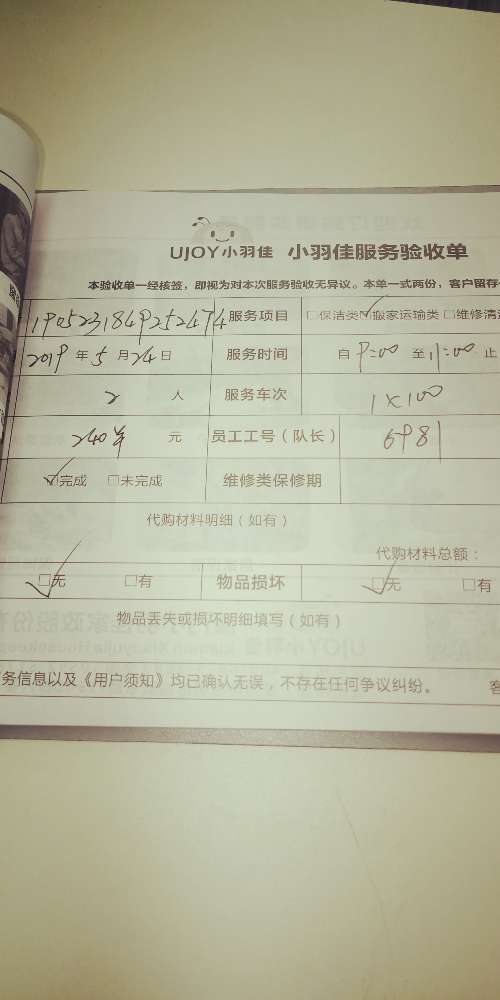 UJOY小羽佳 小羽佳服务验收单
本验收单一经核签，即视为对本次服务验收无异议。本单一式两份，客户留存
1905231849252474 服务项目 □保洁类☑搬家运输类□维修清洗
2019年5月24日 服务时间 自9:00至11:00止
2人 服务车次 1×100
240 元 员工工号（队长） 6981
☑完成 □未完成 维修类保修期
代购材料明细（如有）
代购材料总额：
☑无 □有 物品损坏 ☑无 □有
物品丢失或损坏明细填写（如有）
务信息以及《用户须知》均已确认无误，不存在任何争议纠纷。 客